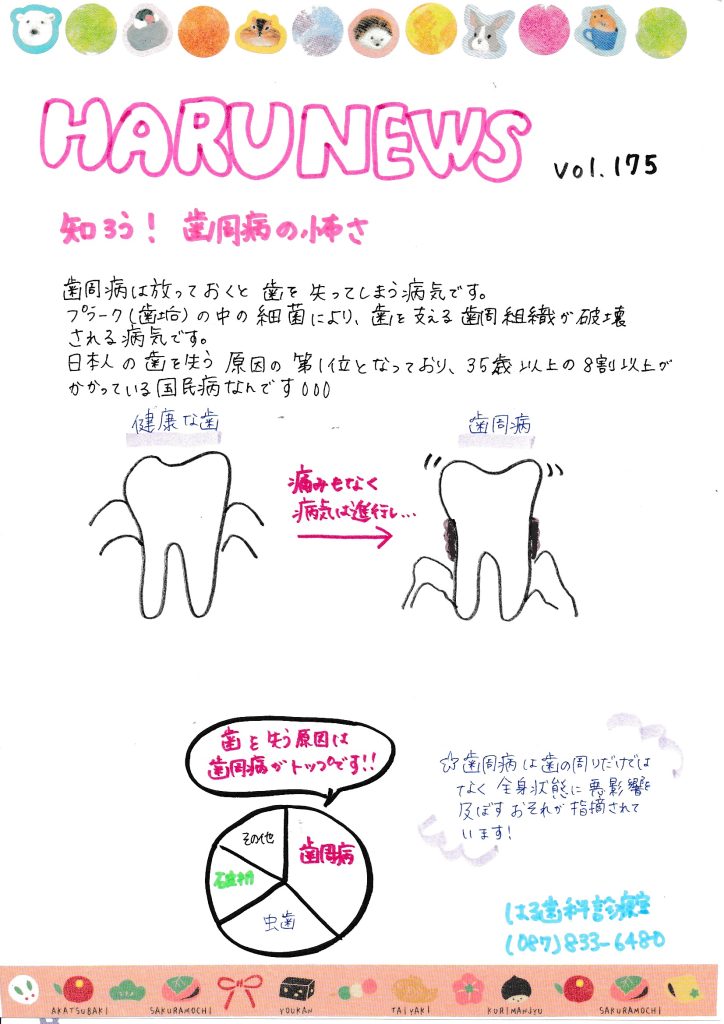 HARU NEWS vol.175
知ろう! 歯周病の怖さ
歯周病は放っておくと歯を失ってしまう病気です。
プラーク(歯垢)の中の細菌により、歯を支える歯周組織が破壊
される病気です。
日本人の歯を失う原因の第1位となっており、35歳以上の8割以上が
かかっている国民病なんです
健康な歯
歯周病
痛みもなく
病気は進行し...
歯を失う原因は
歯周病がトップです!!
その他
歯周病
破折
虫歯
☆歯周病は歯の周りだけでは
なく全身状態に悪影響を
及ぼすおそれが指摘されて
います!
はる歯科診療室
(087)833-6480
AKATSUBAKI SAKURAMOCHI YOUKAN TAIYAKI KURIMANJYU SAKURAMOCHI